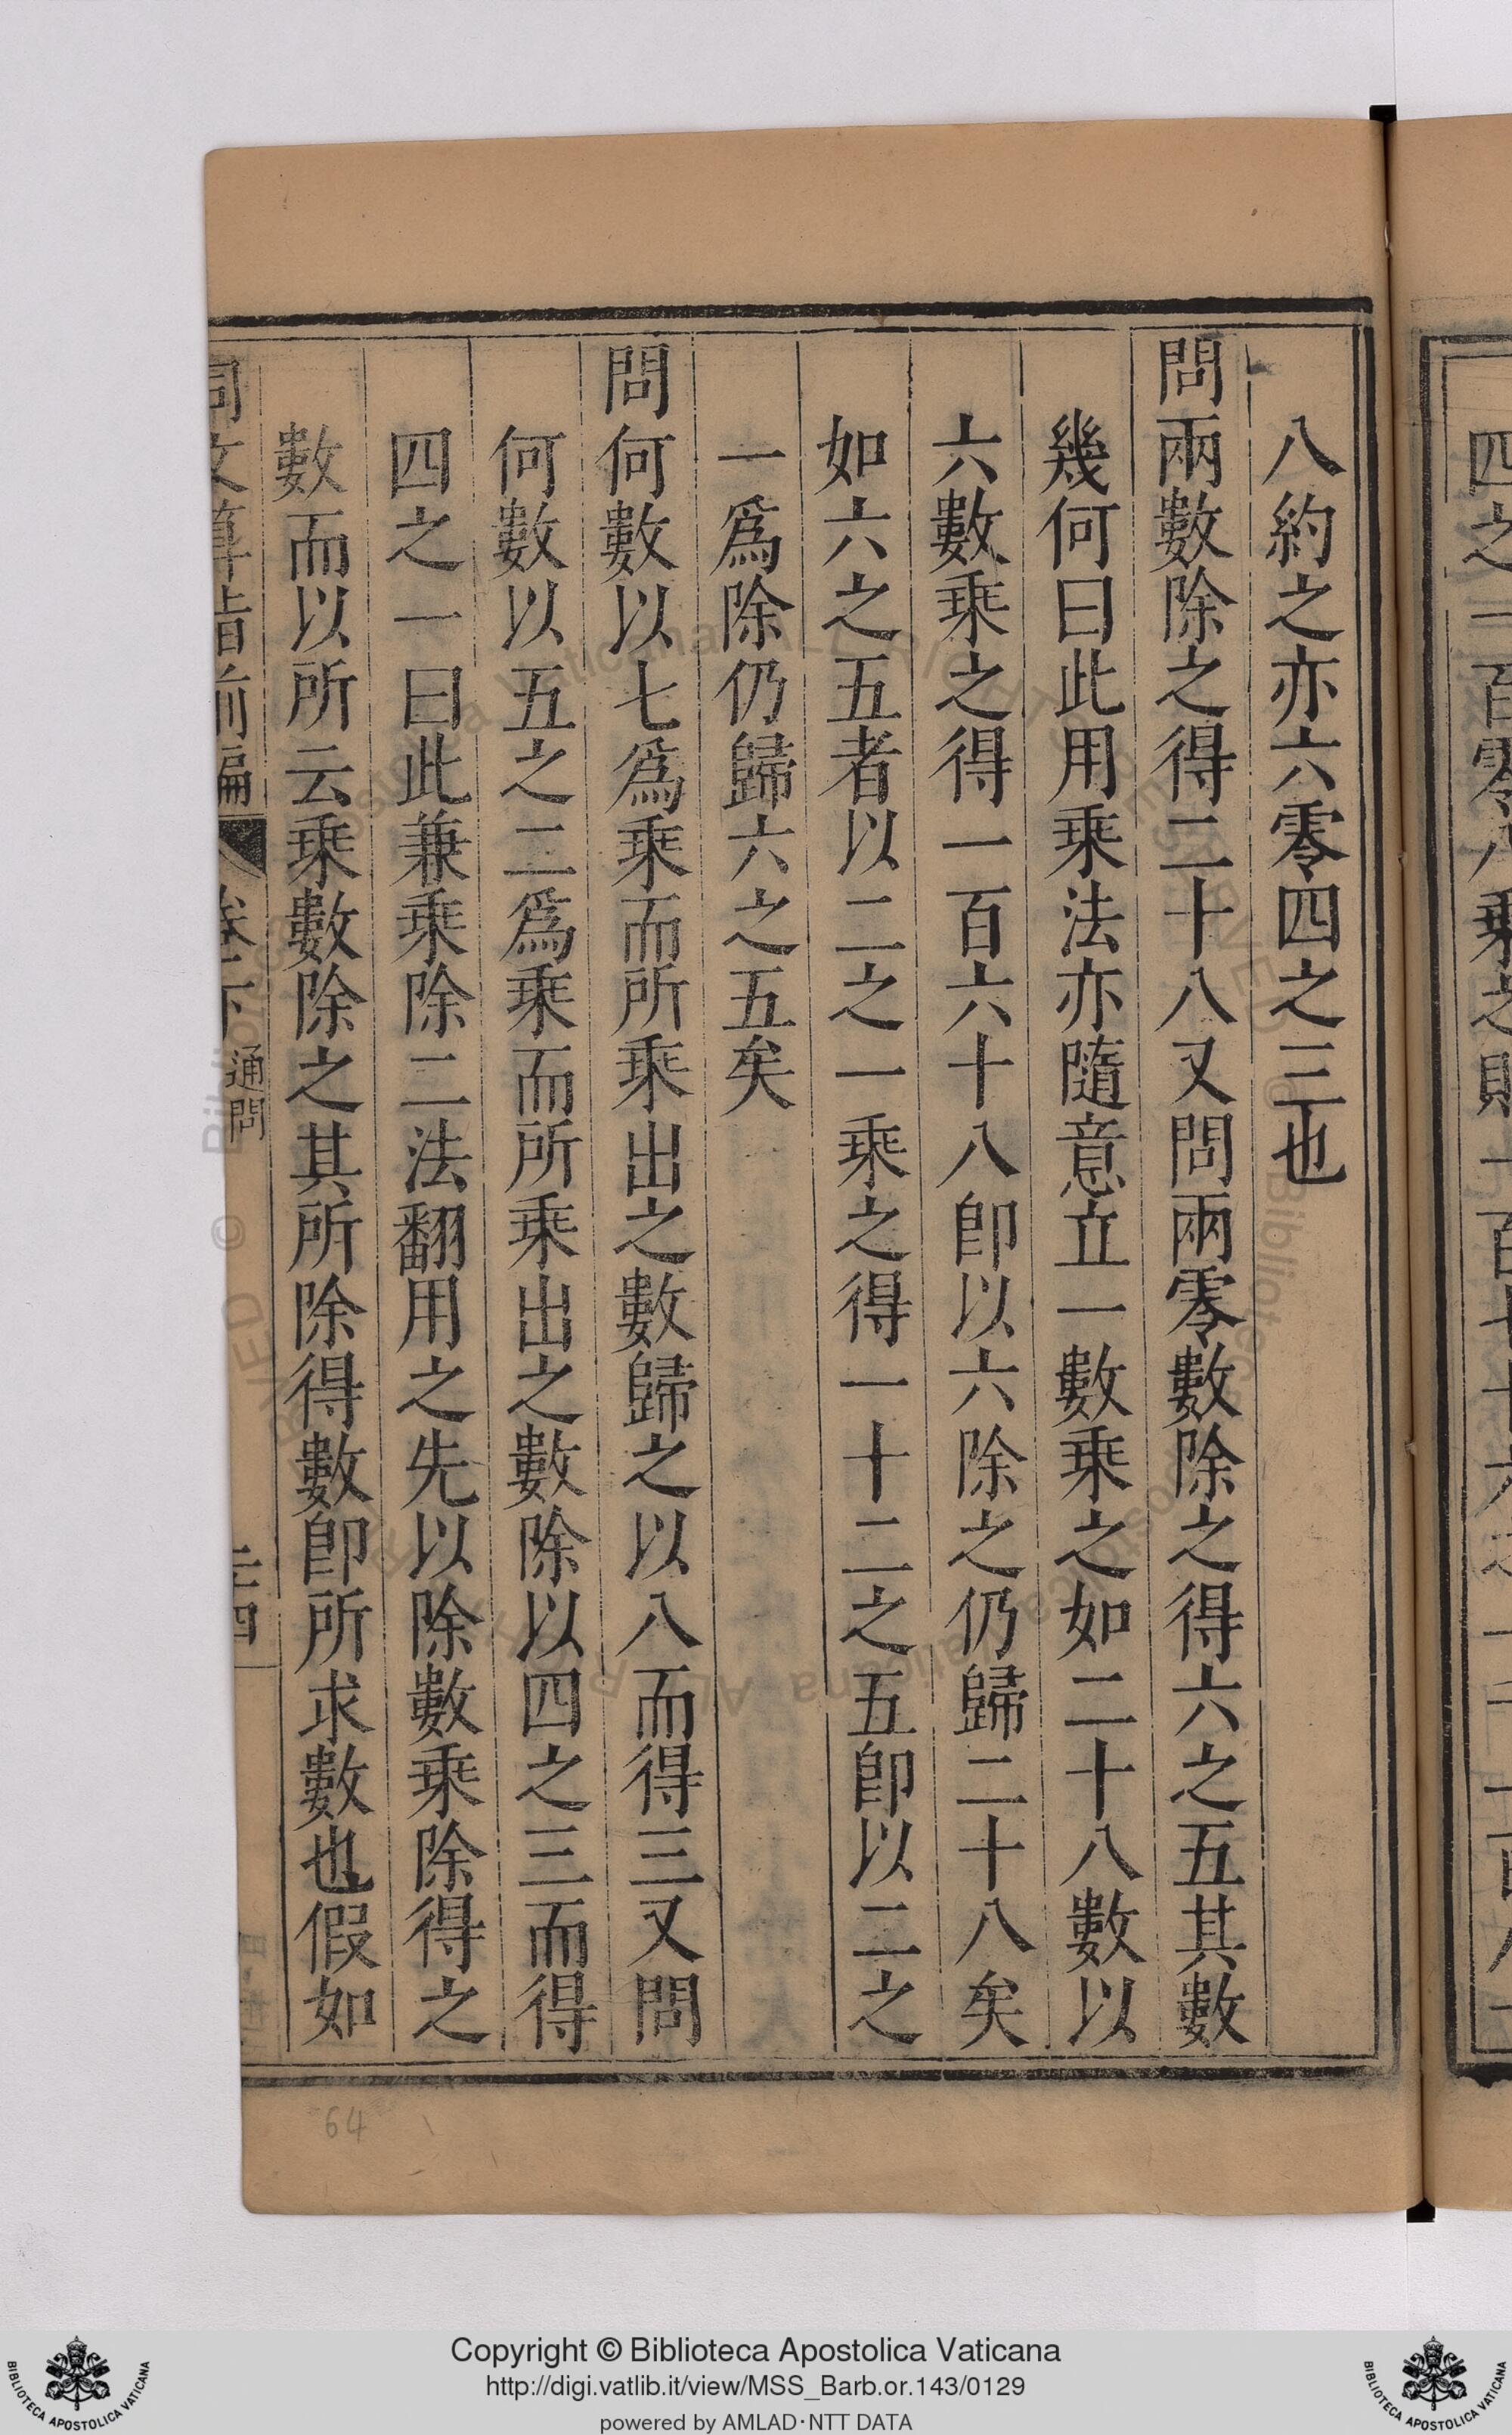 八約之亦六零四之三也
問兩數除之得二十八又問兩零數除之得六之五其數
幾何曰此用乘法亦隨意立一數乘之如二十八數以
六數乘之得一百六十八卽以六除之仍歸二十八矣
如六之五者以二之一乘之得一十二之五卽以二之
一爲除仍歸六之五矣
問何數以七爲乘而所乘出之數歸之以八而得三又問
何數以五之二爲乘而所乘出之數除以四之三而得
四之一曰此兼乘除二法翻用之先以除數乘除得之
數而以所云乘數除之其所除得數卽所求數也假如
同文算指前編 卷下 通問
Copyright © Biblioteca Apostolica Vaticana
http://digi.vatlib.it/view/MSS_Barb.or.143/0129
powered by AMLAD·NTT DATA
BIBLIOTECA APOSTOLICA VATICANA
BIBLIOTECA APOSTOLICA VATICANA
64